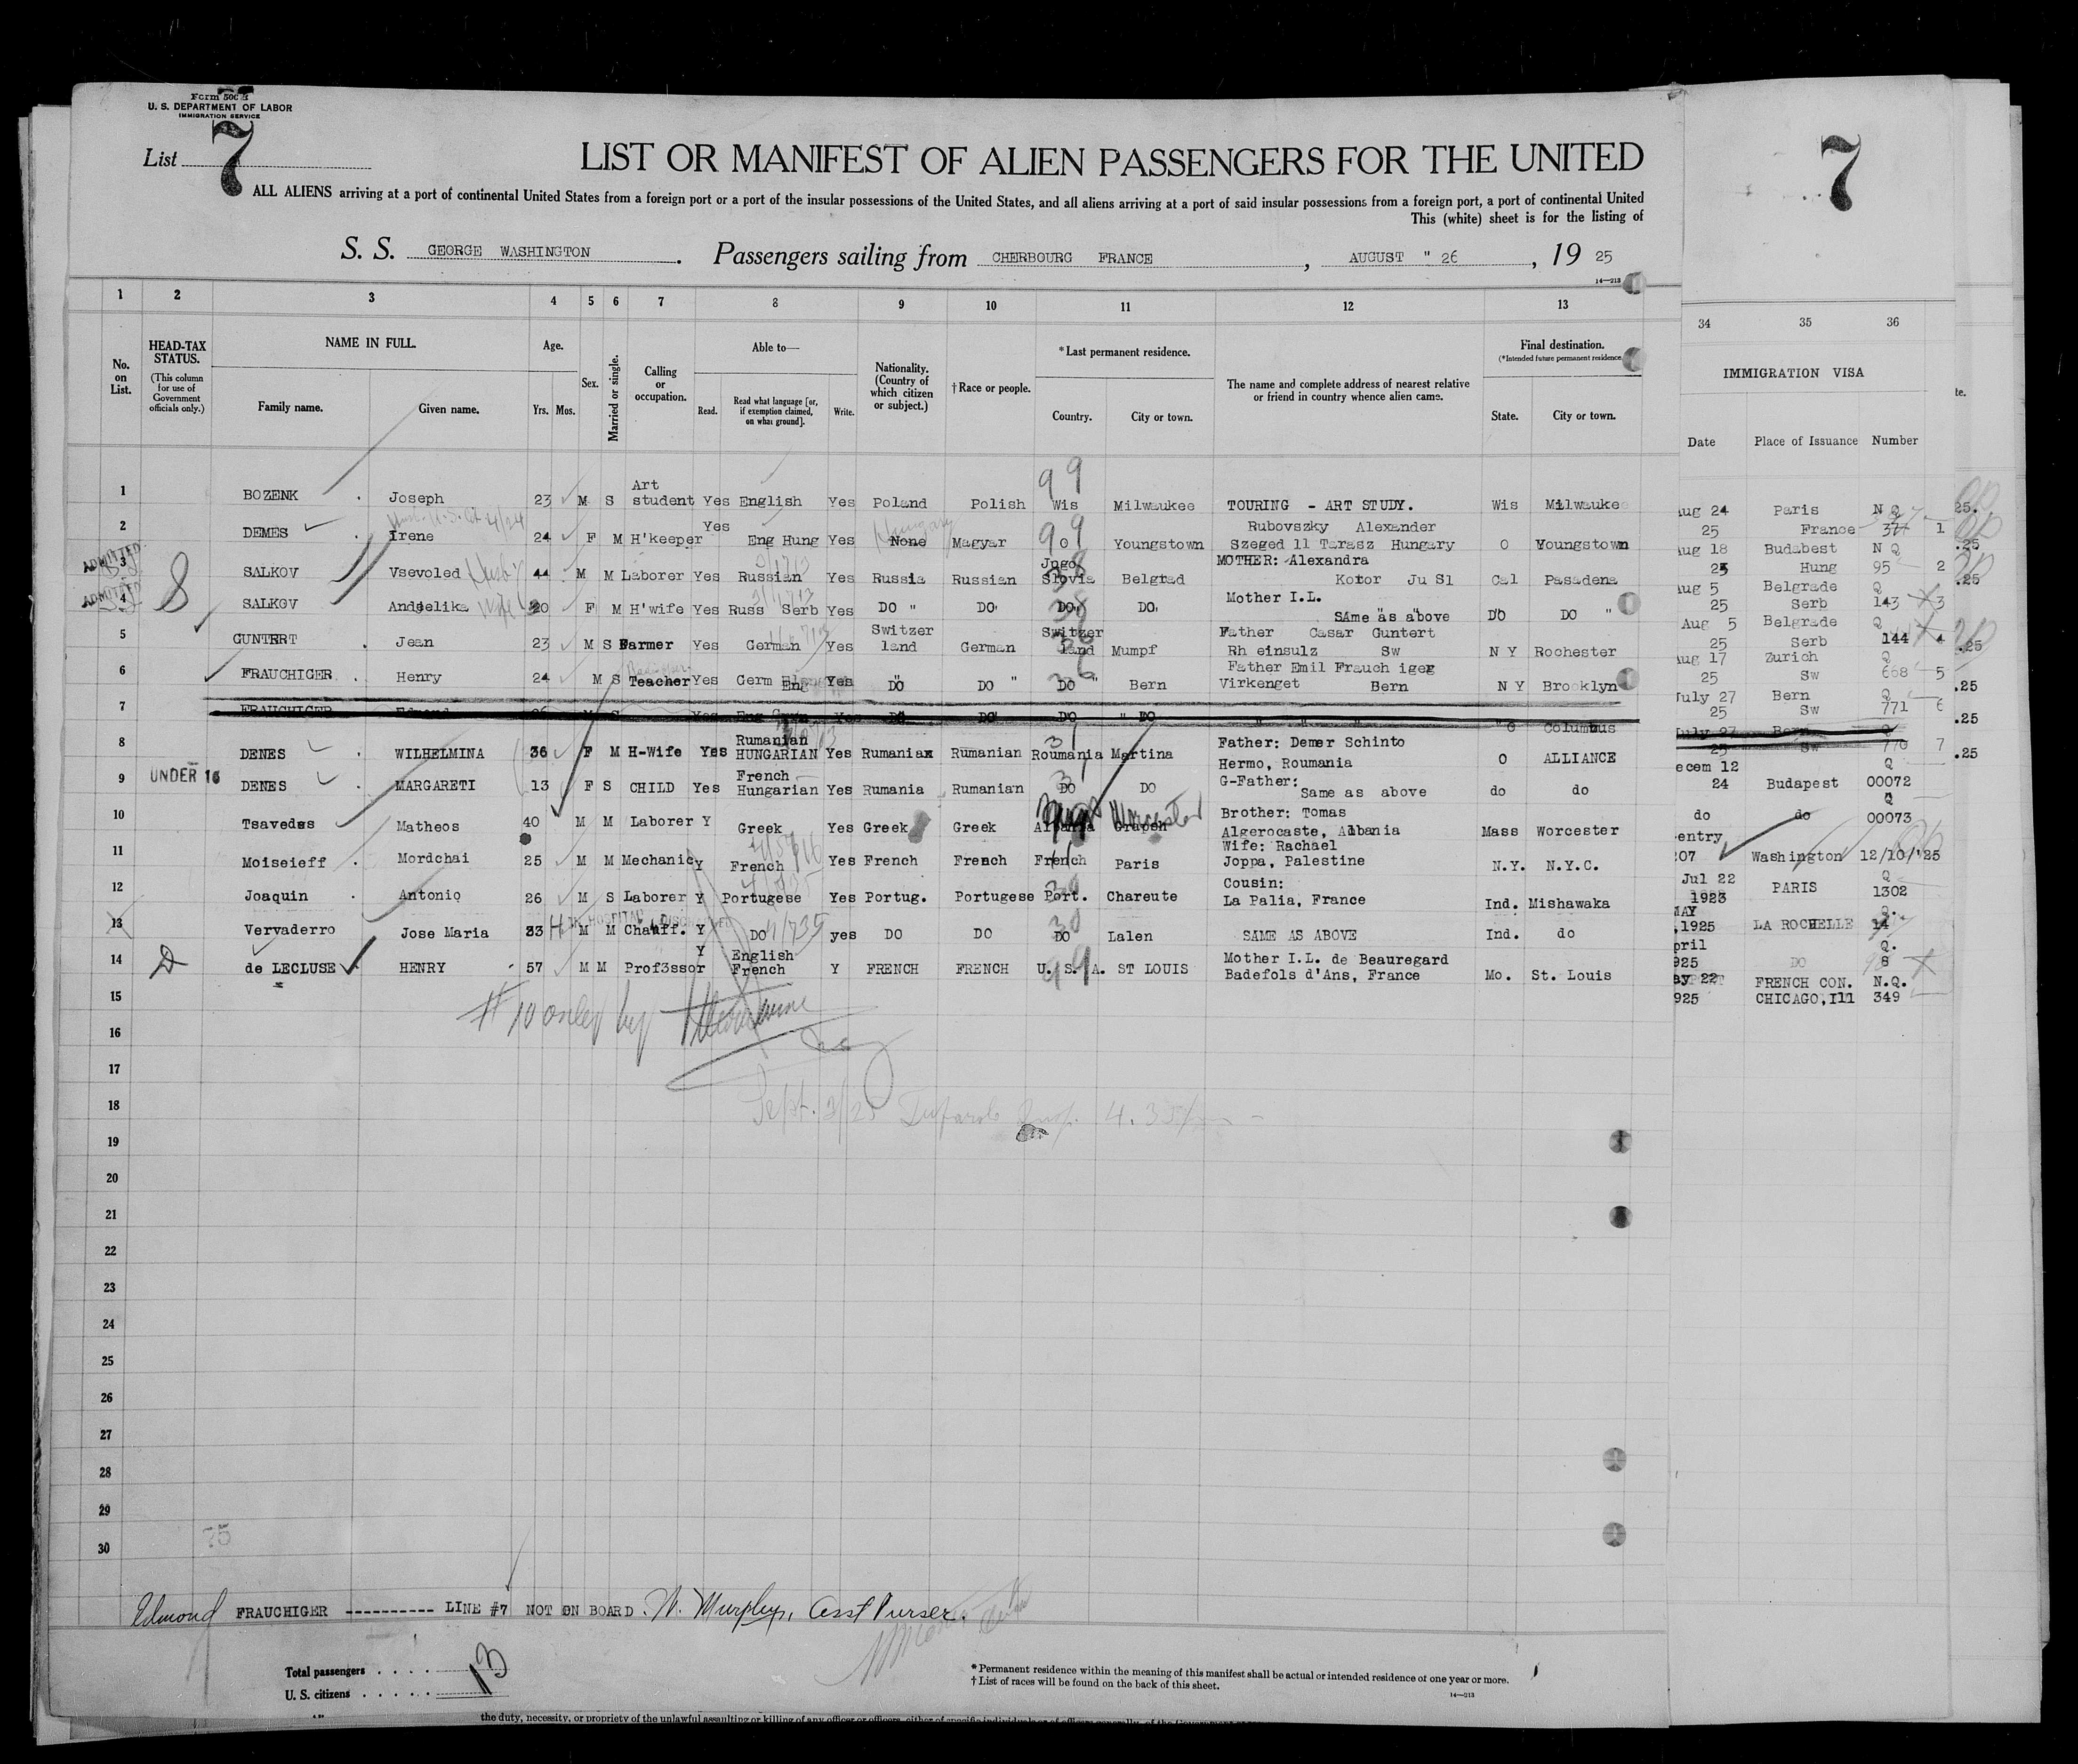 Form 500 B
U. S. DEPARTMENT OF LABOR
IMMIGRATION SERVICE
List 7
7
LIST OR MANIFEST OF ALIEN PASSENGERS FOR THE UNITED
ALL ALIENS arriving at a port of continental United States from a foreign port or a port of the insular possessions of the United States, and all aliens arriving at a port of said insular possessions from a foreign port, a port of continental United
This (white) sheet is for the listing of
S. S. GEORGE WASHINGTON. Passengers sailing from CHERBOURG FRANCE, AUGUST " 26, 19 25
14—213
1 2 3 4 5 6 7 8 9 10 11 12 13 34 35 36
No. on List.
HEAD-TAX STATUS.
(This column for use of Government officials only.)
NAME IN FULL.
Family name. Given name.
Age.
Yrs. Mos.
Sex.
Married or single.
Calling or occupation.
Able to—
Read. Read what language [or, if exemption claimed, on what ground]. Write.
Nationality. (Country of which citizen or subject.)
†Race or people.
*Last permanent residence.
Country. City or town.
The name and complete address of nearest relative or friend in country whence alien came.
Final destination.
(*Intended future permanent residence
State. City or town.
IMMIGRATION VISA
Date Place of Issuance Number
1 BOZENK Joseph 23 M S Art student Yes English Yes Poland Polish Wis Milwaukee TOURING - ART STUDY. Wis Milwaukee
Aug 24 25 Paris France N Q 1
2 DEMES Irene 24 F M H'keeper Yes Eng Hung Yes None Hungary Magyar O Youngstown Rubovszky Alexander Szeged 11 Tarasz Hungary O Youngstown
Aug 18 25 Budabest Hung N Q 95 2
ADMITTED
3 SALKOV Vsevoled 44 M M Laborer Yes Russian Yes Russia Russian Jugo Slovia Belgrad MOTHER: Alexandra Kotor Ju Sl Cal Pasadena
Aug 5 25 Belgrade Serb Q 143 3
ADMITTED
4 SALKOV Andjelika Wife 20 F M H'wife Yes Russ Serb Yes DO " DO" DO" DO" Mother I.L. SAme as above DO DO "
Aug 5 25 Belgrade Serb Q 144 4
5 GUNTERT Jean 23 M S Farmer Yes German Yes Switzer land German Switzer land Mumpf Father Casar Guntert Rh einsulz Sw N Y Rochester
Aug 17 25 Zurich Sw Q 668 5
6 FRAUCHIGER Henry 24 M S Teacher Yes Germ Eng Yes DO DO " DO " Bern Father Emil Frauch iger Virkenget Bern N Y Brooklyn
July 27 25 Bern Sw Q 771 6
7 FRAUCHIGER Edmond 26 M S Yes Eng Germ Yes DO DO DO " DO " " " O Columbus
July 27 25 Bern Sw Q 770 7
8 DENES WILHELMINA 36 F M H-Wife Yes Rumanian HUNGARIAN Yes Rumanian Rumanian Roumania Martina Father: Demer Schinto Hermo, Roumania O ALLIANCE
ecem 12 24 Budapest Q 00072
9 UNDER 16 DENES MARGARETI 13 F S CHILD Yes French Hungarian Yes Rumania Rumanian DO DO G-Father: Same as above do do
do do Q 00073
10 Tsavedas Matheos 40 M M Laborer Y Greek Yes Greek Greek Albania Grapsh Worcester Brother: Tomas Algerocaste, Albania Mass Worcester
entry 207 Washington 12/10/'25
11 Moiseieff Mordchai 25 M M Mechanic Y French Yes French French French Paris Wife: Rachael Joppa, Palestine N.Y. N.Y.C.
Jul 22 1923 PARIS Q 1302
12 Joaquin Antonio 26 M S Laborer Y Portugese Yes Portug. Portugese Port. Chareute Cousin: La Palia, France Ind. Mishawaka
MAY 1925 LA ROCHELLE Q. 14
13 Vervaderro Jose Maria 33 M M Chauff. Y DO yes DO DO DO Lalen SAME AS ABOVE Ind. do
pril 925 DO Q. 8
14 de LECLUSE HENRY 57 M M Prof3ssor Y English French Y FRENCH FRENCH U. S. A. ST LOUIS Mother I.L. de Beauregard Badefols d'Ans, France Mo. St. Louis
ay 22 925 FRENCH CON. CHICAGO,Ill N.Q. 349
15
#10 only by
16
17
18
19
20
21
22
23
24
25
26
27
28
29
30
75
Edmond FRAUCHIGER ---------- LINE #7 NOT ON BOARD. W. Murphy, Asst Purser.
Total passengers . . . . 13
U. S. citizens . . . . .
*Permanent residence within the meaning of this manifest shall be actual or intended residence of one year or more.
†List of races will be found on the back of this sheet.
14—213
the duty, necessity, or propriety of the unlawful assaulting or killing of any officer or officers, either of specific individuals or of officers generally, of the Government